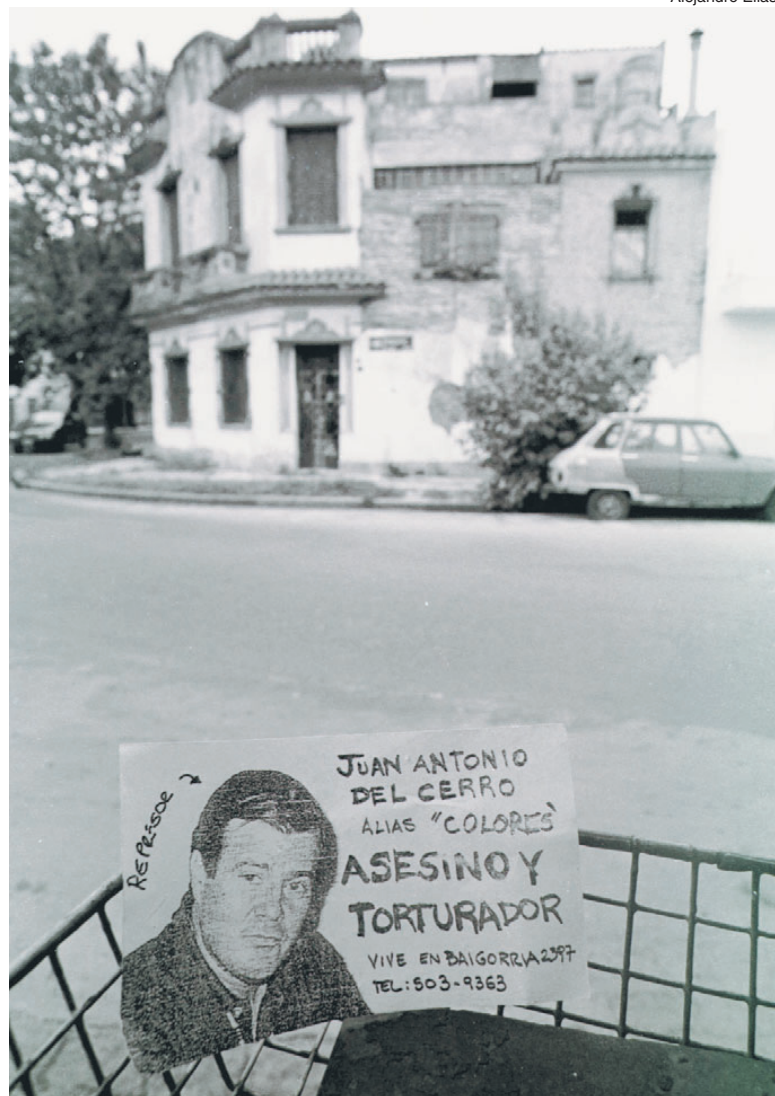 Alejandro Elías
REPRESOR
JUAN ANTONIO
DEL CERRO
ALIAS "COLORES"
ASESINO Y
TORTURADOR
VIVE EN BAIGORRIA 2397
TEL: 503-9363